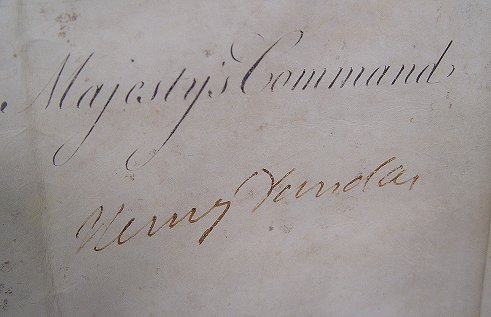 Majesty's Command
Henry Dundas